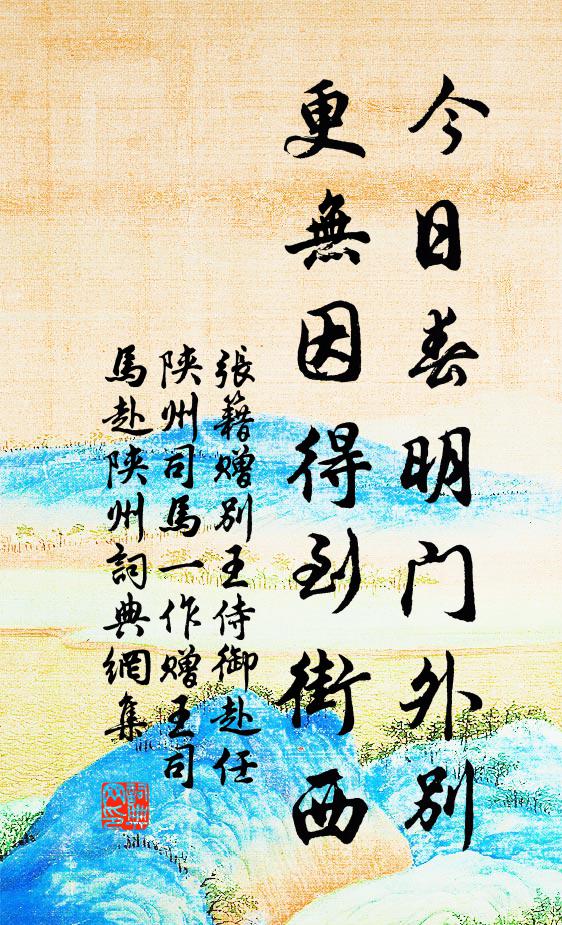 今日春明门外別
更無因得到街西
張籍赠別王侍御赴任
陕州司馬一作赠王司
馬赴陕州詞典網集